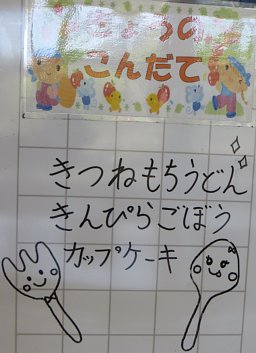 きょうの
こんだて
きつねもちうどん
きんぴらごぼう
カップケーキ